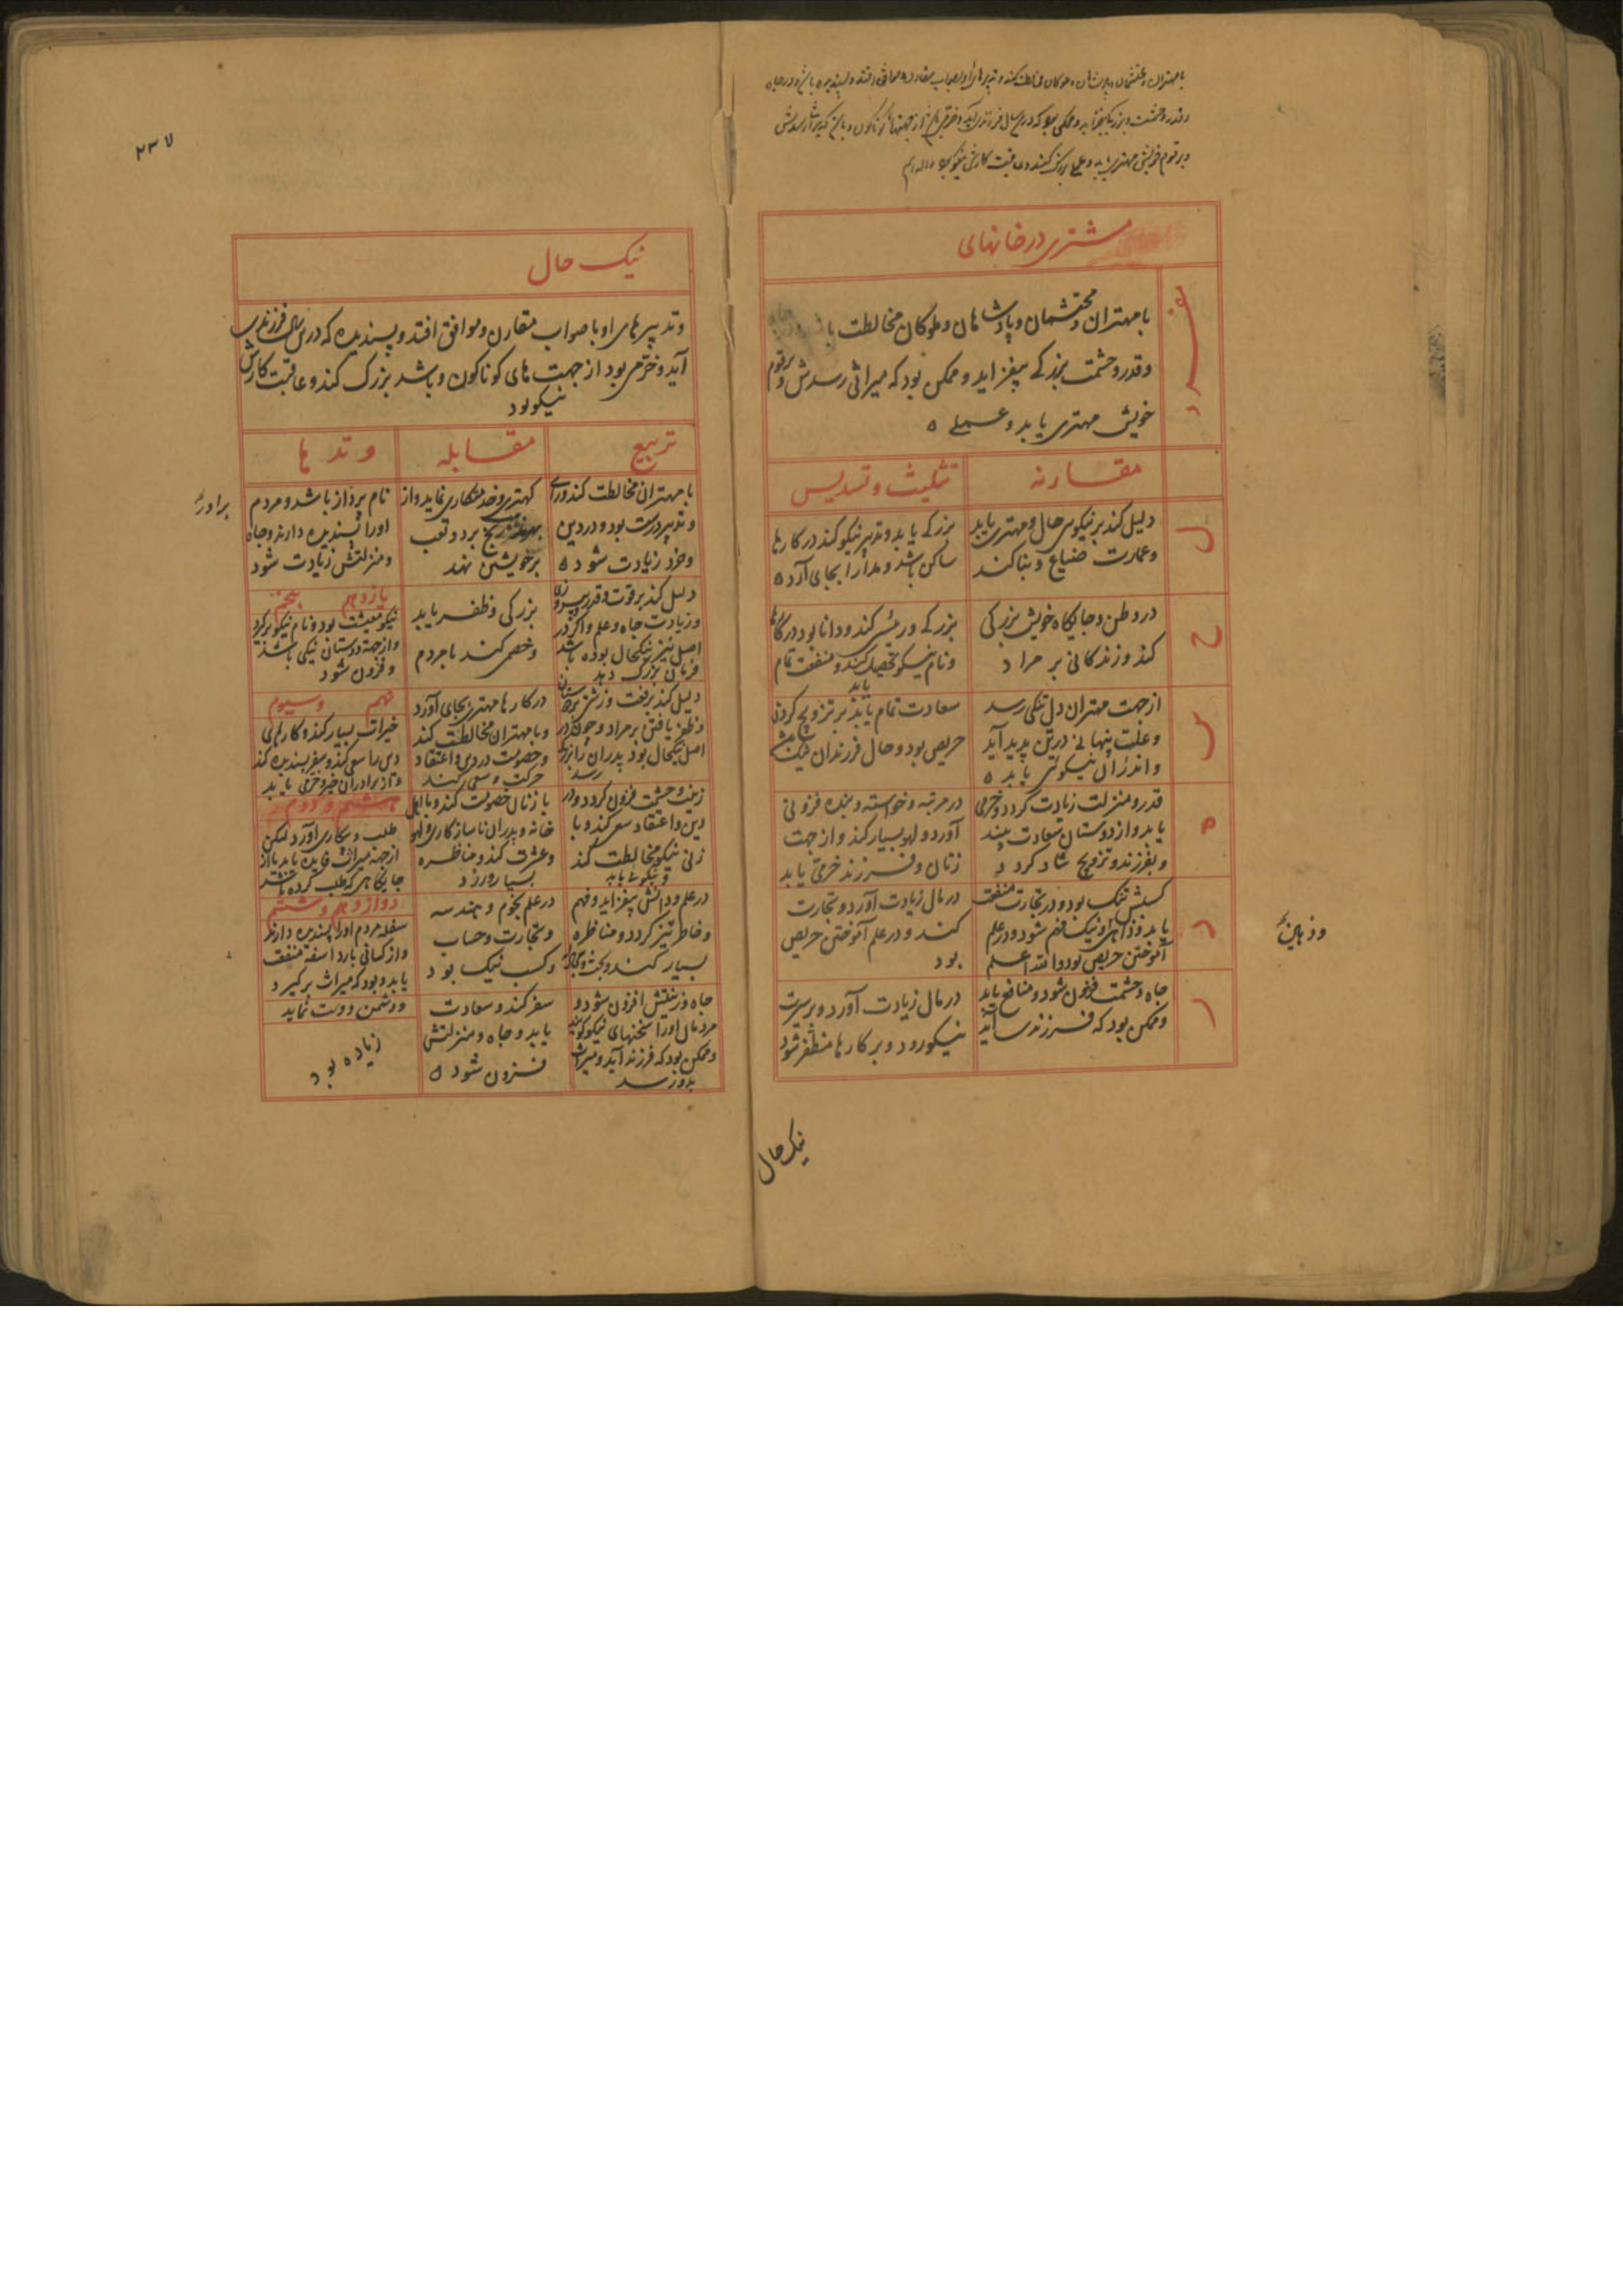 با مهتران و محتشمان و پادشاهان و ملوکان مخالطت کند و تدبیرهای او با صواب مقارن و موافق افتد و پسندیده باشد و در جاه
و قدر و حشمت و بزرگی بیفزاید و ممکن بود که درین سال فرزندی آید و خرمی از جهتهای گوناگون و باشد که میراثی رسدش
و بر قوم خویش مهتری یابد و عملی بزرگ کند و عاقبت کارش نیکو بود
مشتری در خانهای
با مهتران و محتشمان و پادشاهان و ملوکان مخالطت
و قدر و حشمت بزرکے بیفزاید و ممکن بود که میراثی رسدش و برقوم
خویش مهتری یابد و عملے
مقارنه
تثلیث و تسدیس
ل
دلیل کند بر نیکوی حال و مهتری یابد
و عمارت ضیاع و بنا کند
بزرکے یابد و تدبیر نیکو کند در کارها
ساکن باشد و مدارا بجای آرد
ح
در وطن و جایکاه خویش بزرکی
کند و زندکانی بر مراد
بزرکے ورزش کند و دانا بود در کارها
و نام نیکو تحصیل کند و منفعت تمام
یابد
س
از جهت مهتران دل تنکی رسد
و علت پنهانی در تن پدید آید
و اندران نیکوئی یابد
سعادت تمام یابد بر تزویج کردن
حریص بود و حال فرزندان نیک باشد
ه
قدر و منزلت زیادت کردد و خرمی
یابد و از دوستان سعادت بیند
و بفرزند و تزویج شاد کردد
در مرتبه و خواسته و بنده فزونی
آورد و لهو بسیار کند و از جهت
زنان و فرزند خرمی یابد
د
کسبش نیک بود و در تجارت منفعت
یابد و ذکی و نیک فهم شود و در علم
آموختن حریص بود والله اعلم
در مال زیادت آورد و تجارت
کند و در علم آموختن حریص
بود
ر
جاه و حشمت فزون شود و منافع یابد
و ممکن بود که فرزندی آید
در مال زیادت آورد و بر سیرت
نیکو رود و بر کارها مظفر شود
نیک حال
۲۳۷
نیک حال
و تدبیرهای او با صواب مقارن و موافق افتد و پسندیده که درین سال فرزندی
آید و خرمی بود از جهت های کوناکون و باشد بزرک کند و عاقبت کارش
نیکو بود
تربیع
مقابله
وتدها
با مهتران مخالطت کند و رای
و تدبیر درست بود و در دین
و خرد زیادت شود
کهتری و خدمتکاری نماید و از
رنج برد و تعب
بر خویشتن نهد
نام بردار باشد و مردم
او را پسندیده دارند و جاه
و منزلتش زیادت شود
دلیل کند بر قوت و قدر
و زیادت جاه و علم و اکر در
اصل نیز نیکحال بوده باشد
فرمان بزرک دهد
بزرکی و ظفر یابد
و خصمی کند با مردم
یازدهم پنجم
نیکو معیشت بود و نام نیکو برکیرد
و از جهة دوستان نیکی باشد
و فزون شود
دلیل کند بر رفعت و زینش
و ظفر یافتن بر مراد و چون در
اصل نیکحال بود پدران را بزرکی
رسد
در کارها مهتری بجای آورد
و با مهتران مخالطت کند
و خصومت در دین و اعتقاد
حرکت و سعی کند
نهم و سیوم
خیرات بسیار کند و کارهای
دین را سعی کند و سفر پسندیده کند
و از برادران خیر و خرمی یابد
زینت و حشمت فزون کردد و در
دین و اعتقاد سعی کند و با
زنی نیکو مخالطت کند
و نیکوئی یابد
با زنان خصومت کند و با اهل
خانه و پدران ناسازکاری و لهو
و عشرت کند و مناظره
بسیار ورزد
هشتم و دوم
طلب و بیکاری آورد لیکن
از جهة میراث فایده یابد یا از
جایکاهی که طلب کرده باشد
در علم و دانش بیفزاید و فهم
و خاطر تیز کردد و مناظره
بسیار کند و بحث
در علم نجوم و هندسه
و تجارت و حساب
و کسب نیک بود
دوازدهم و ششم
سفله مردم او را پسندیده دارند
و از کسانی باردا سفه منفعت
یابد و بود که میراث برکیرد
و دشمن دوست نماید
جاه و زینتش افزون شود و
مردمان او را سخنهای نیکو کویند
و ممکن بود که فرزند آید و میراث
بدو رسد
سفر کند و سعادت
یابد و جاه و منزلتش
فزون شود
زیاده بود